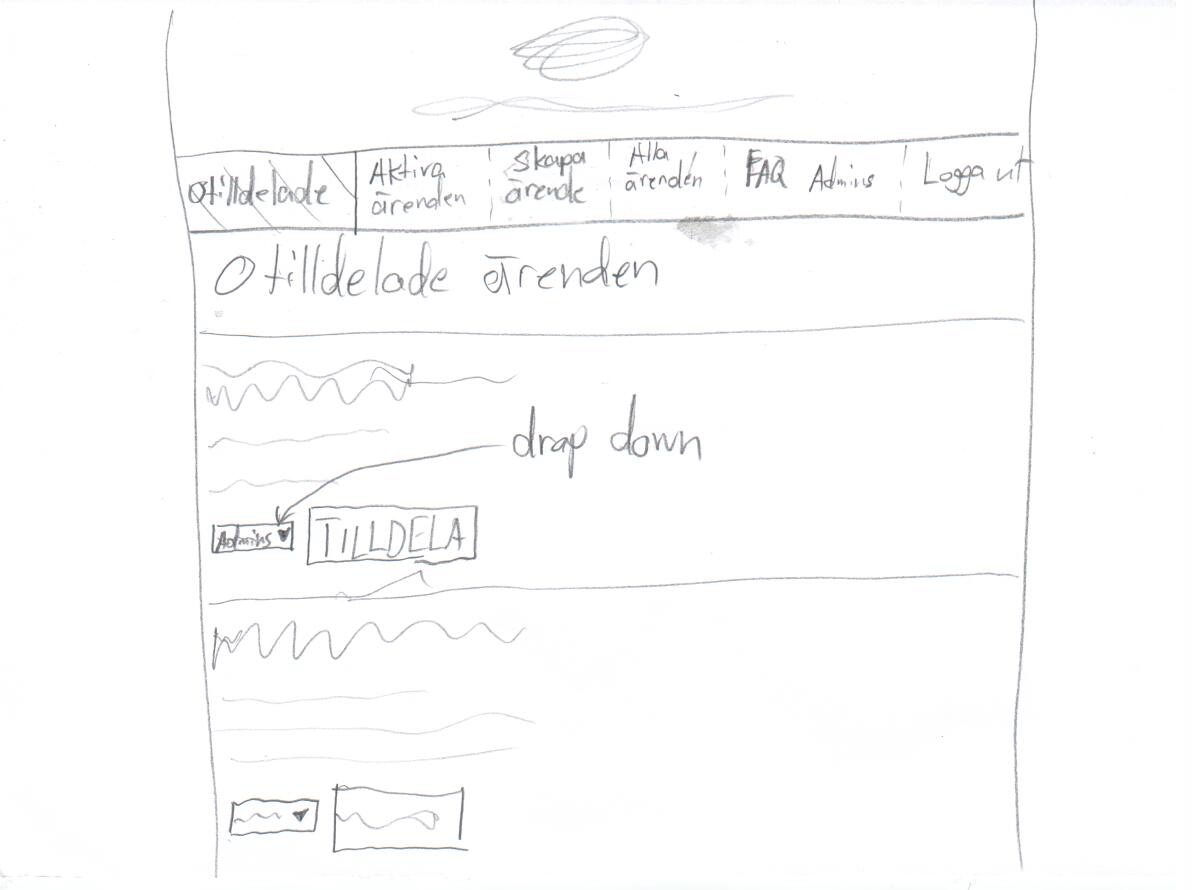 Otilldelade
Aktiva
ärenden
Skapa
ärende
Alla
ärenden
FAQ
Admins
Logga ut
Otilldelade ärenden
drap down
Admins
TILLDELA